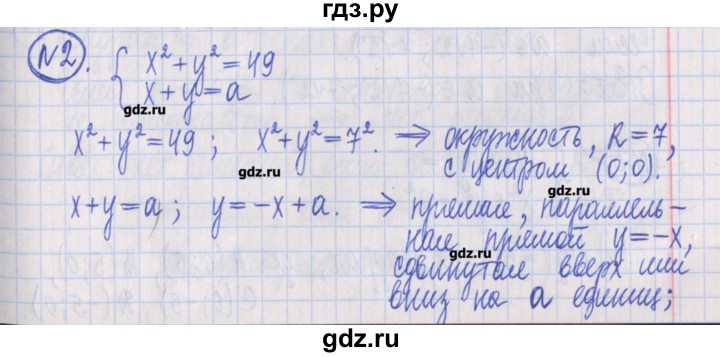 гдз.ру
№2. { x² + y² = 49
x + y = a
gdz.ru
x² + y² = 49 ; x² + y² = 7². ⟹ окружность, R = 7,
с центром (0;0).
gdz.ru
gdz.ru
x + y = a ; y = -x + a. ⟹ прямая, параллель-
ная прямой y = -x,
gdz.ru
сдвинутая вверх или
вниз на a единиц;
gdz.ru
gdz.ru